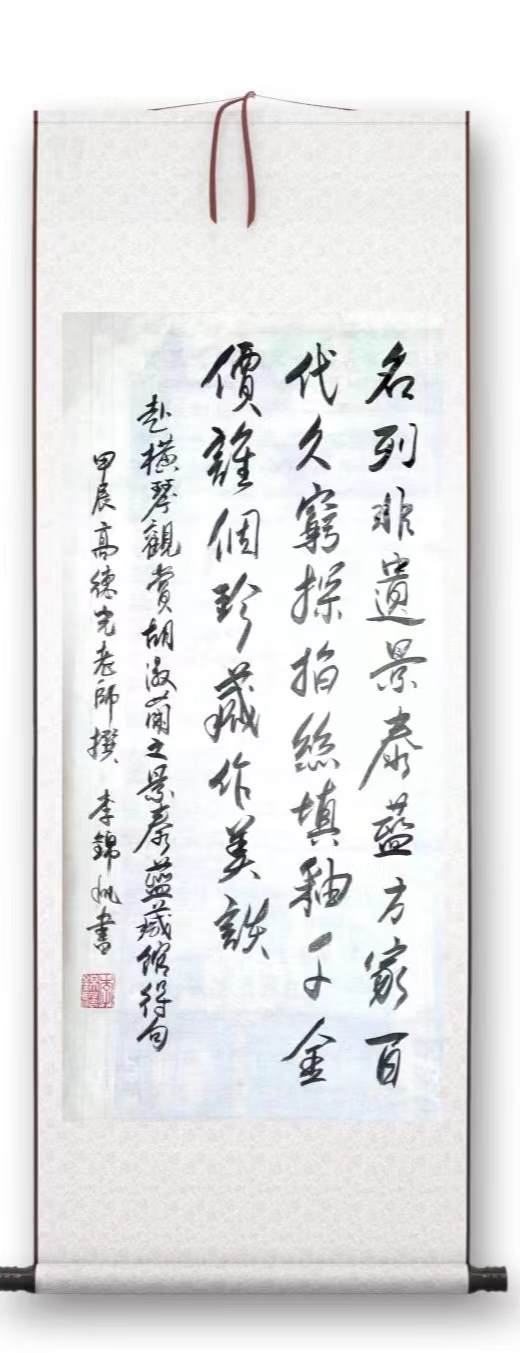 名列非遺景泰藍方家百
代久窮探掐絲填釉千金
價誰個珍藏作美談
赴橫琴觀賞胡淑蘭之景泰藍藏館得句
甲辰高德光老師撰 李錦帆書